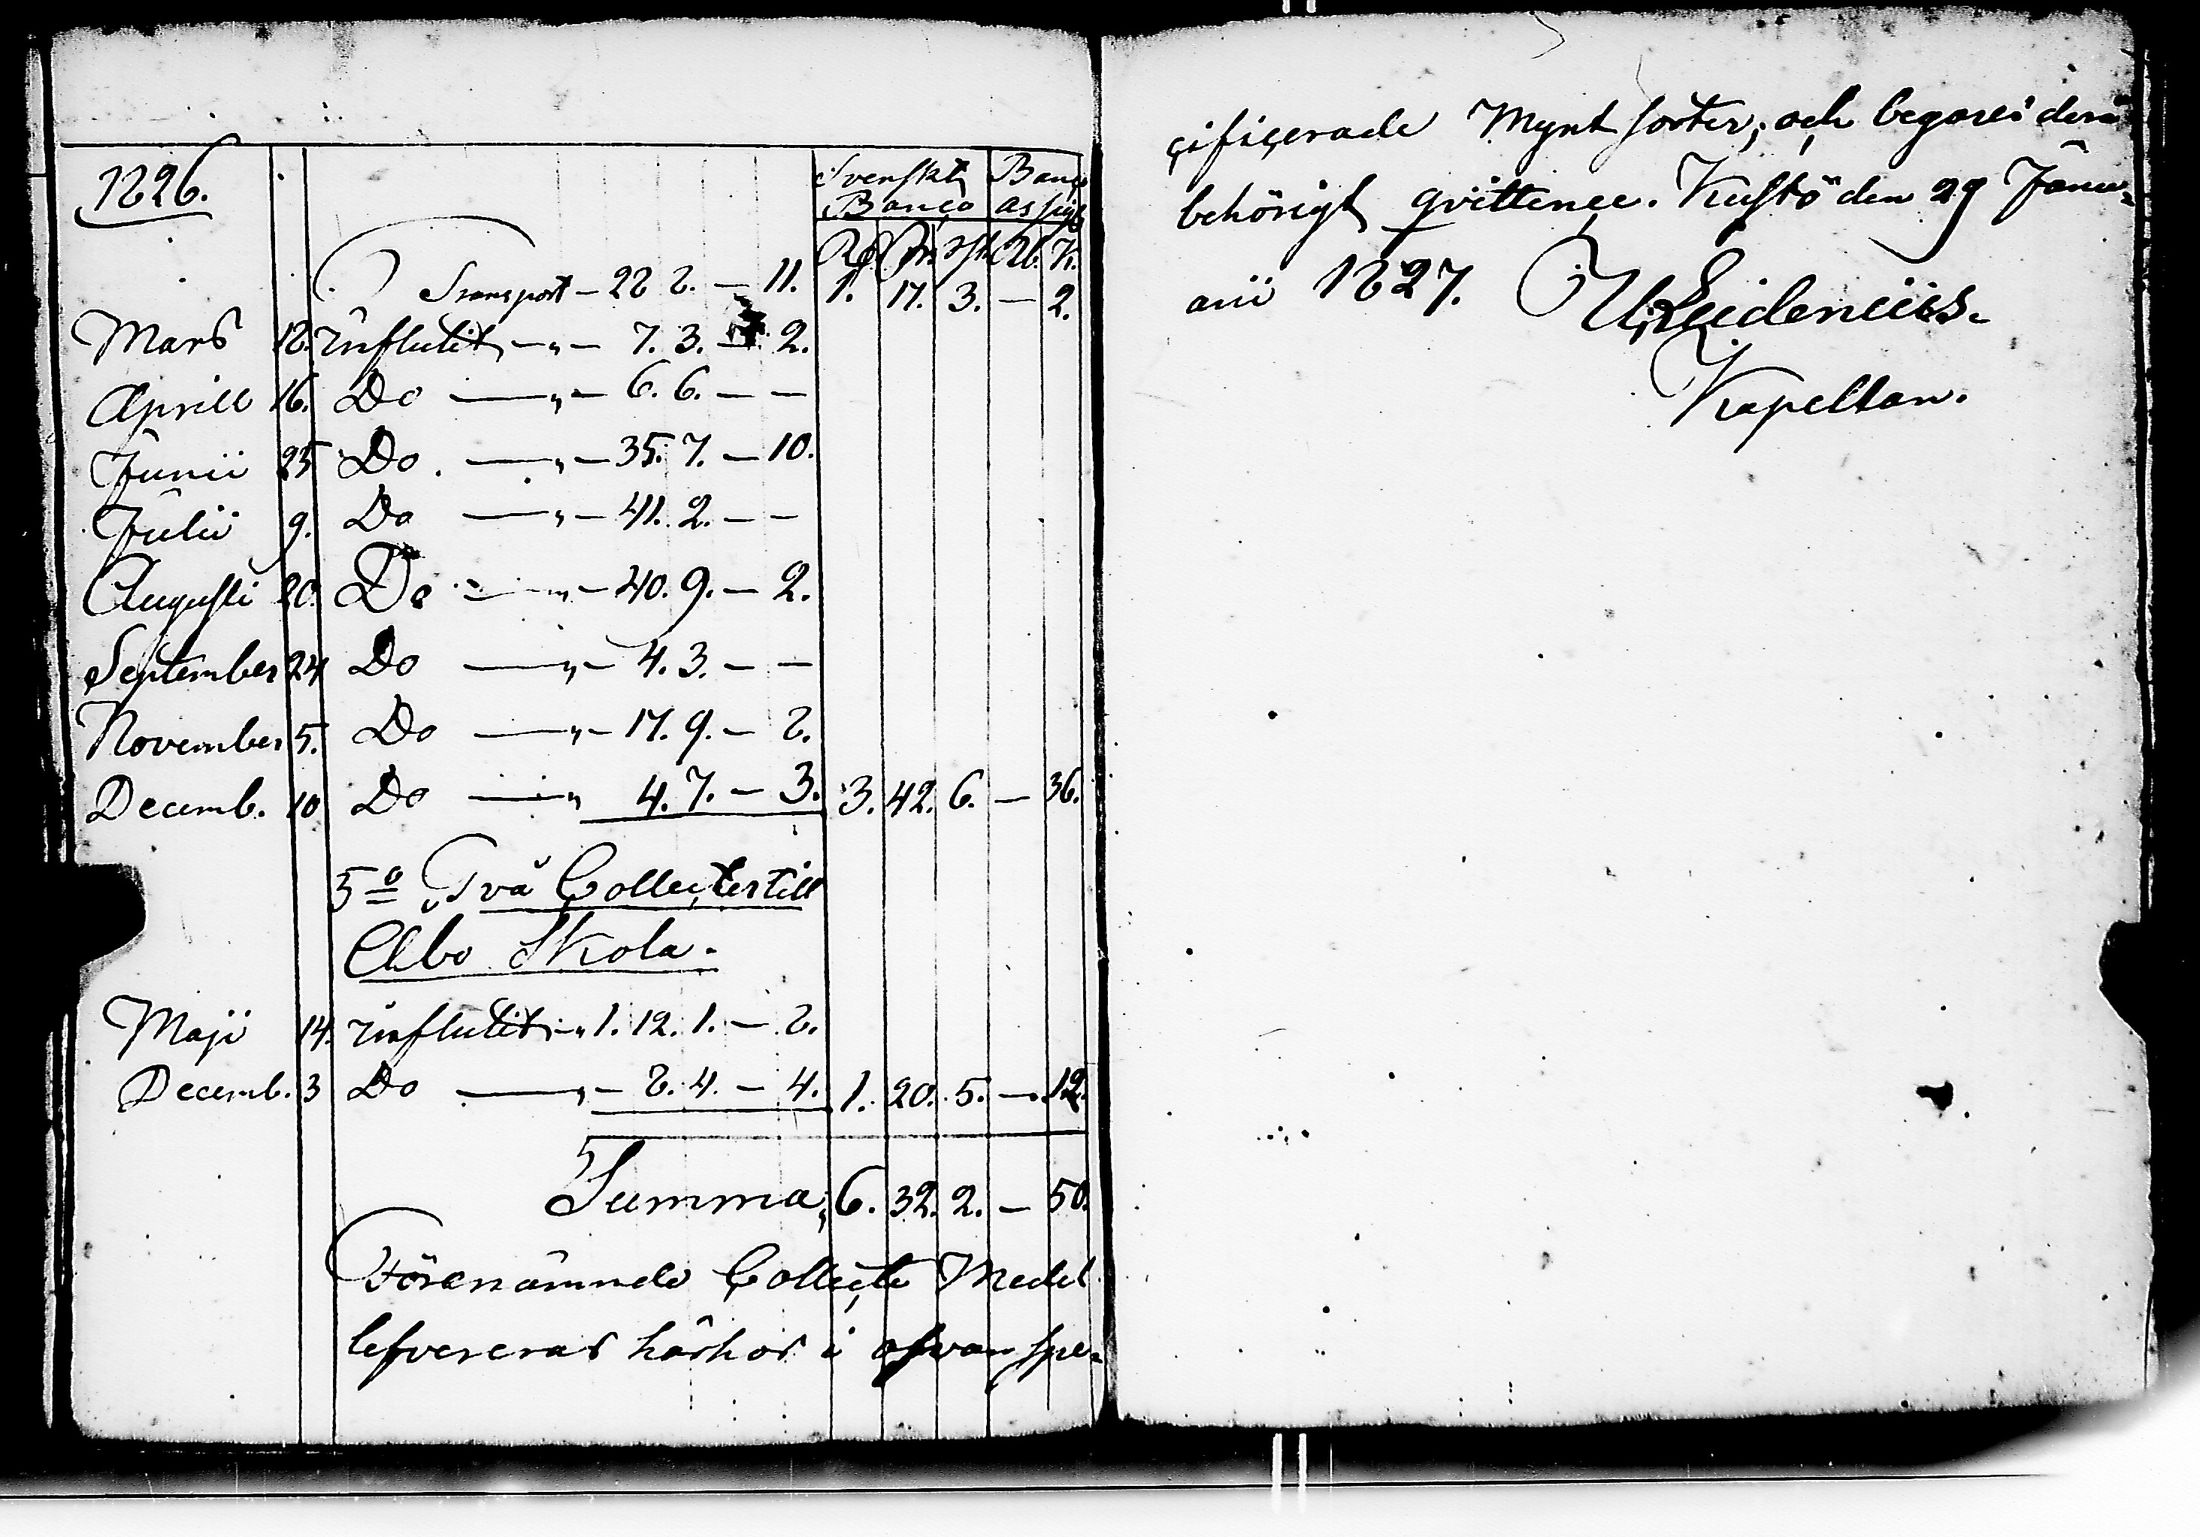 1826.
Svenskt Banco
Banco assigt
Rd. Sk. rst. Rb. K.
Transport — 28 8. — 11. 1. 17. 3. — 2.
Mars 12. influtit — „ — 7. 3. — 2.
Aprill 16. Do — „ — 6. 6. — —
Junii 25 Do. — „ — 35. 7. — 10.
Julii 9. Do — „ — 41. 2. — —
Augusti 20. Do — „ — 40. 9. — 2.
September 24 Do — „ — 4. 3. — —
November 5. Do — „ — 17. 9. — 8.
Decemb. 10 Do — „ 4. 7. — 3. 3. 42. 6. — 36.
5o Två Collecter till
Åbo Skola.
Maji 14. influtit „ 1. 12. 1. — 8.
Decemb. 3 Do — „ — 8. 4. — 4. 1. 20. 5. — 12.
Summa, 6. 32. 2. — 50.
Förenämnde Collecte Medel
lefvereras härhos i ofvan spe-
cificerade Mynt sorter, och begäres derå
behörigt qvittence. Kustö den 29 Janu-
arii 1827.
Kapellan.